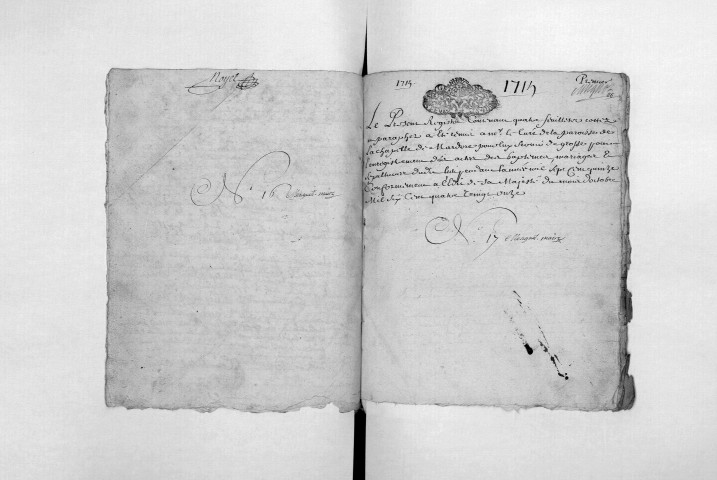 Noyel
N. 16
1715
1715
Premier
Le Present Registre Contenant quatre feuillets cottez
parapher a esté remis a mr. le Curé de la paroisse de
La chapelle de Mardore pour luy servir de grosse pour
l'enregistrement des actes des baptemes mariages et
sepultures durant l'année mil sept Cent quinze
Conformement a l'Edit de Sa Majesté du mois d'octobre
Mil six Cent quatre vingt onze
N. 17